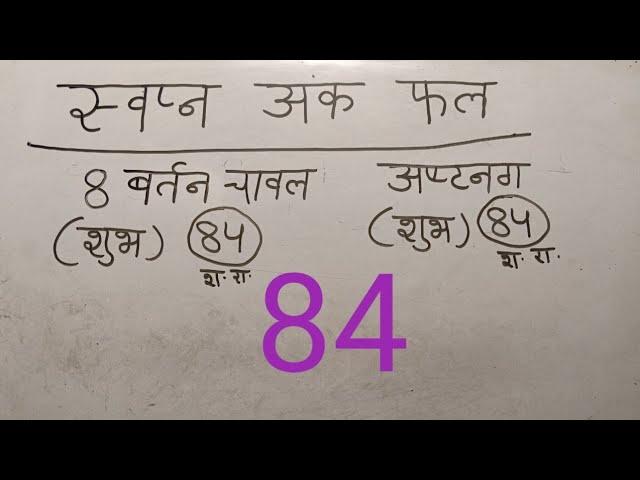 स्वप्न अंक फल
8 बर्तन चावल अष्टनग
(शुभ) 84 (शुभ) 84
श. रा. श. रा.
84